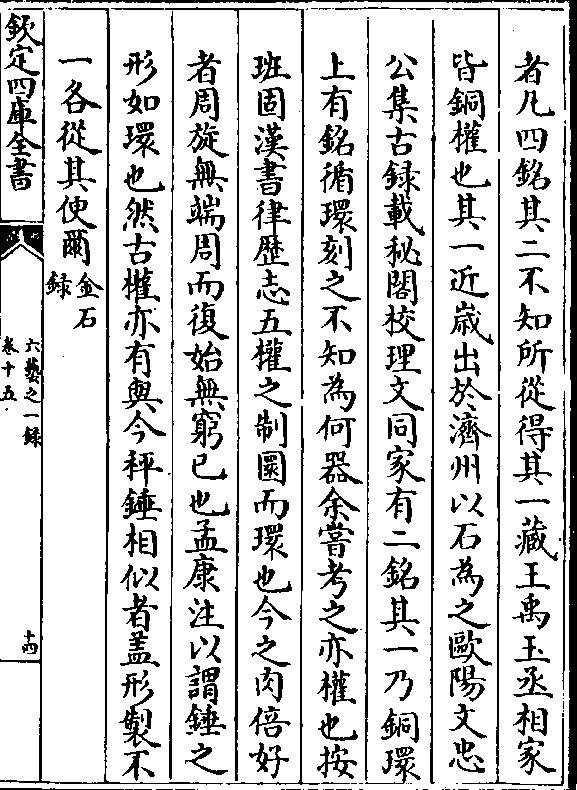 者凡四銘其二不知所從得其一藏王禹玉丞相家
皆銅權也其一近嵗出於濟州以石為之歐陽文忠
公集古録載秘閣校理文同家有二銘其一乃銅環
上有銘循環刻之不知為何器余嘗考之亦權也按
班固漢書律歴志五權之制圜而環也今之肉倍好
者周旋無端周而復始無窮已也孟康注以謂錘之
形如環也然古權亦有與今秤錘相似者盖形製不
一各從其使爾金石
録
欽定四庫全書
六藝之一録
卷十五
十四